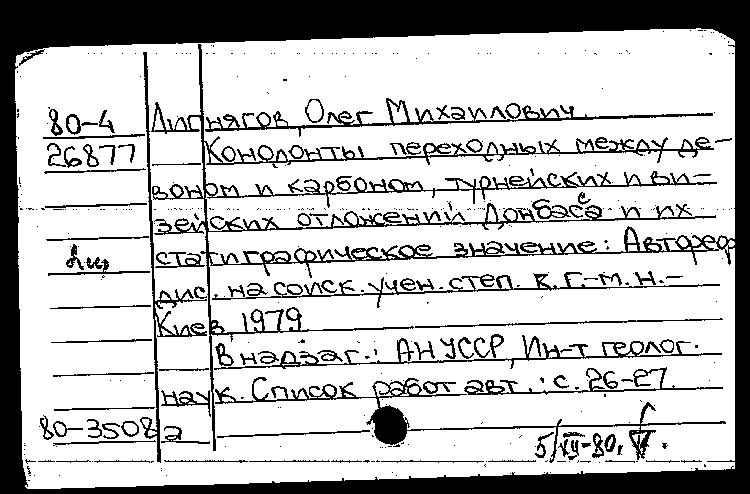 80-4 Липнягов, Олег Михайлович.
26877 Конодонты переходных между де-
воном и карбоном, турнейских и ви-
зейских отложений Донбасса и их
статиграфическое значение: Автореф
дис. на соиск. учен. степ. к. г.-м. н.-
Киев, 1979
В надзаг.: АН УССР, Ин-т геолог.
наук. Список работ авт.: с. 26-27.
80-3508 а
5/XII-80.